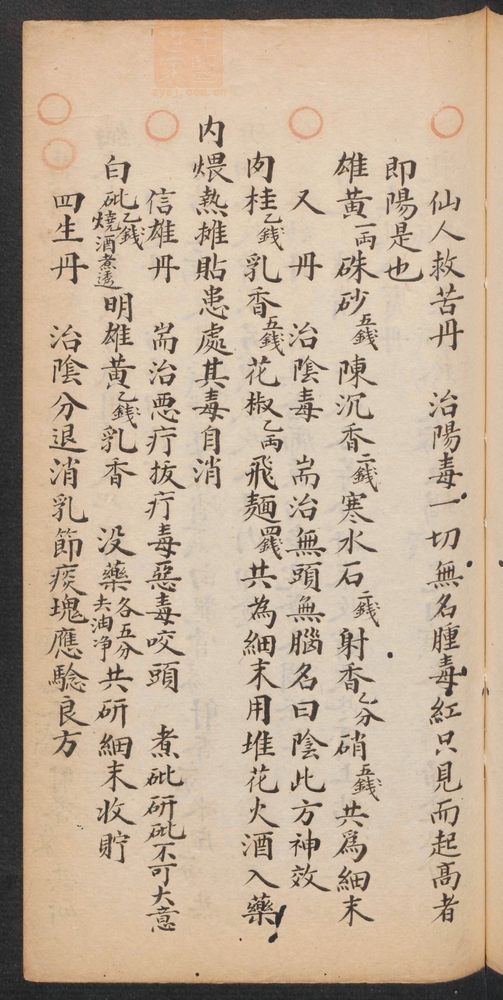 仙人救苦丹　治陽毒一切無名腫毒紅只見而起髙者
即陽是也
雄黄一両硃砂五錢陳沉香二錢寒水石二錢射香乙分硝五錢共爲細末
又　丹　治陰毒　耑治無頭無腦名曰陰此方神效
肉桂乙錢乳香五錢花椒乙両飛麵四錢共為細末用堆花火酒入藥
内煨熱摊貼患處其毒自消
信雄丹　耑治悪疔拔疔毒惡毒咬頭　煮砒研砒不可大意
白砒乙錢燒酒煮透明雄黄乙錢乳香　没藥各五分去油净共研細末收貯
四生丹　治陰分退消乳節痰塊應驗良方